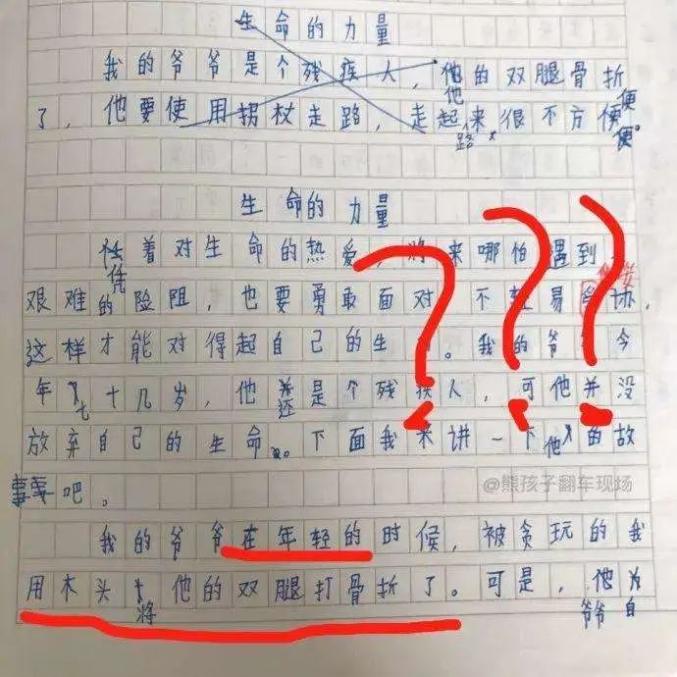 生命的力量
我的爷爷是个残疾人，他的双腿骨折
了，他要使用拐杖走路，走起路来很不方便。
生命的力量
凭着对生命的热爱，将来哪怕遇到
艰难的险阻，也要勇敢面对，不轻易妥协，
这样才能对得起自己的生。我的爷今
年七十几岁，他还是个残疾人，可他并没
放弃自己的生命。下面我来讲一下他的故
事吧。
@熊孩子翻车现场
我的爷爷在年轻的时候，被贪玩的我
用木头将他的双腿打骨折了。可是，爷爷自